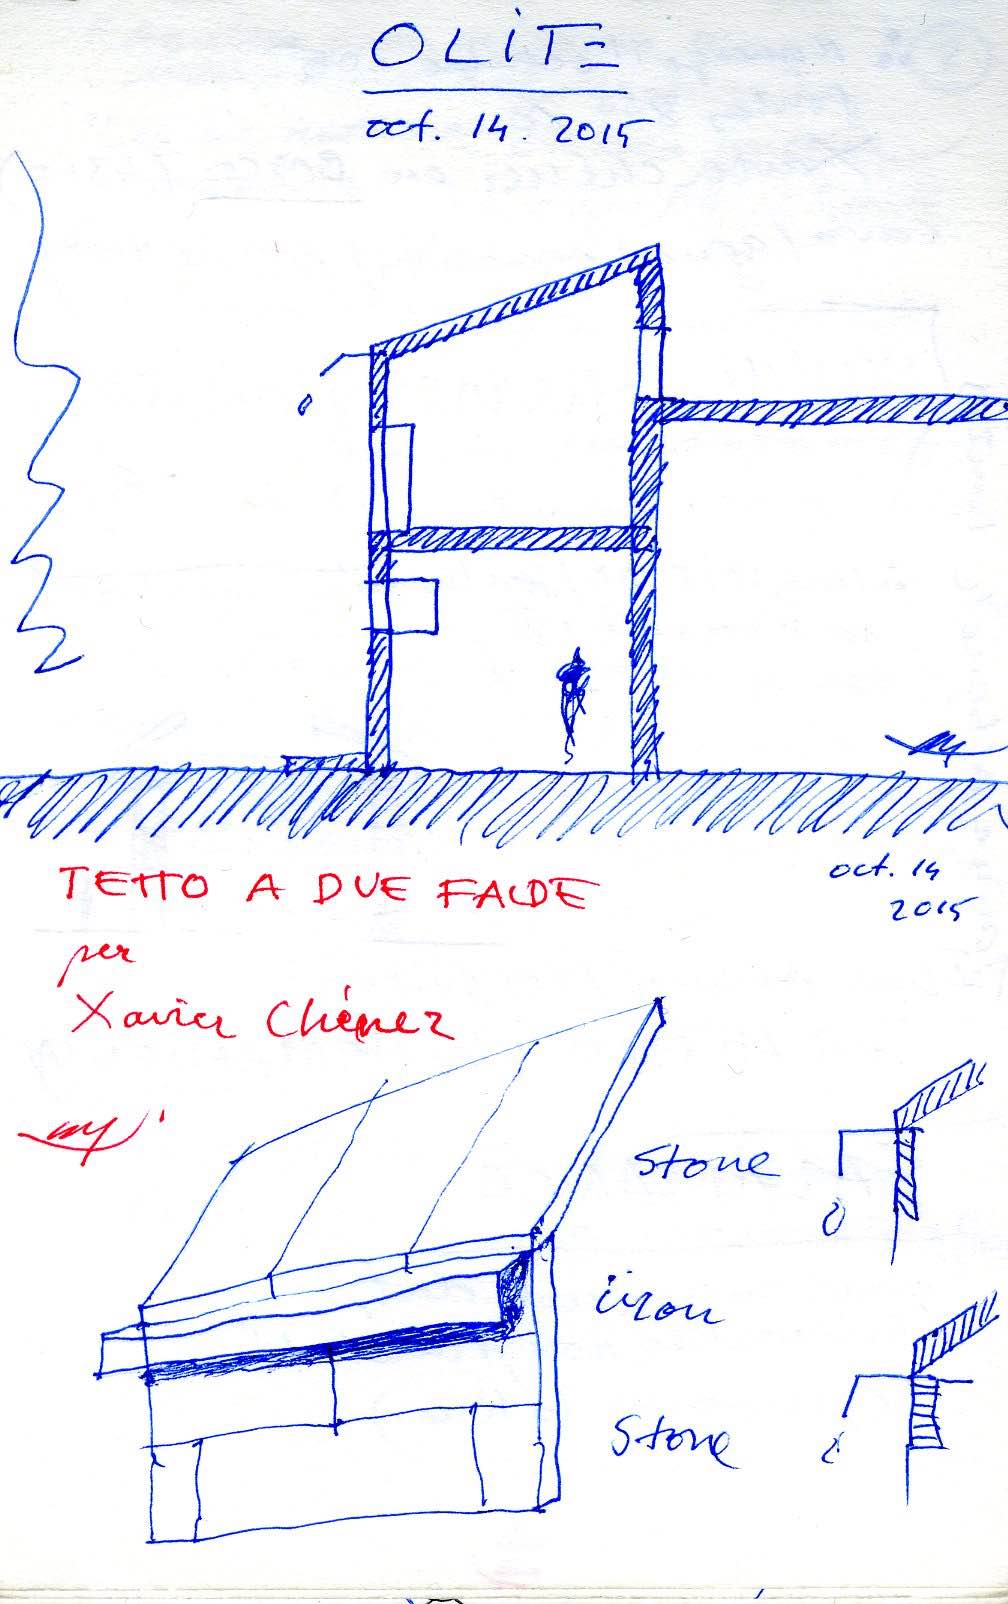 OLiTE
oct. 14. 2015
oct. 14
2015
TETTO A DUE FALDE
per
Xavier Chérrez
Stone
iron
Stone